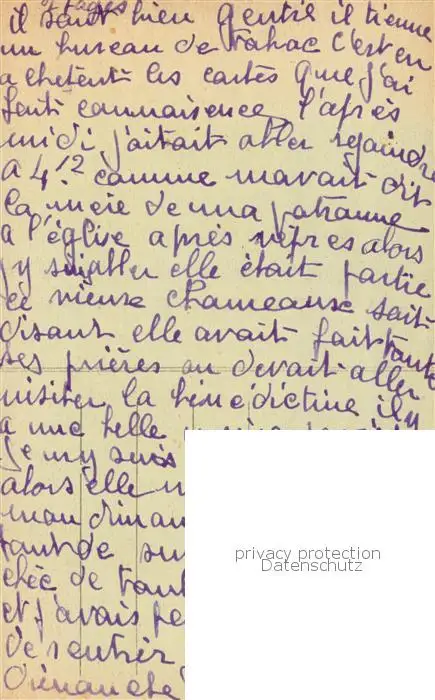 il sont bien gentie il tienne
un bureau de tabac c'est en
achetent les cartes que j'ai
fait connaisence l'après
midi j'aitait aller rejoindre
a 4h½ comme mavait dit
la mère de ma patronne
a l'église après vêpres alors
j'y suis aller elle était partie
ce vieux chameaux sait
disant elle avait fait toute
ses prières on devait aller
visiter la bénédictine il y
a une belle
je my suis
alors elle
mon diman
tant de su
chée de tout
et j'avais
de rentrer
Dimanche
privacy protection
Datenschutz